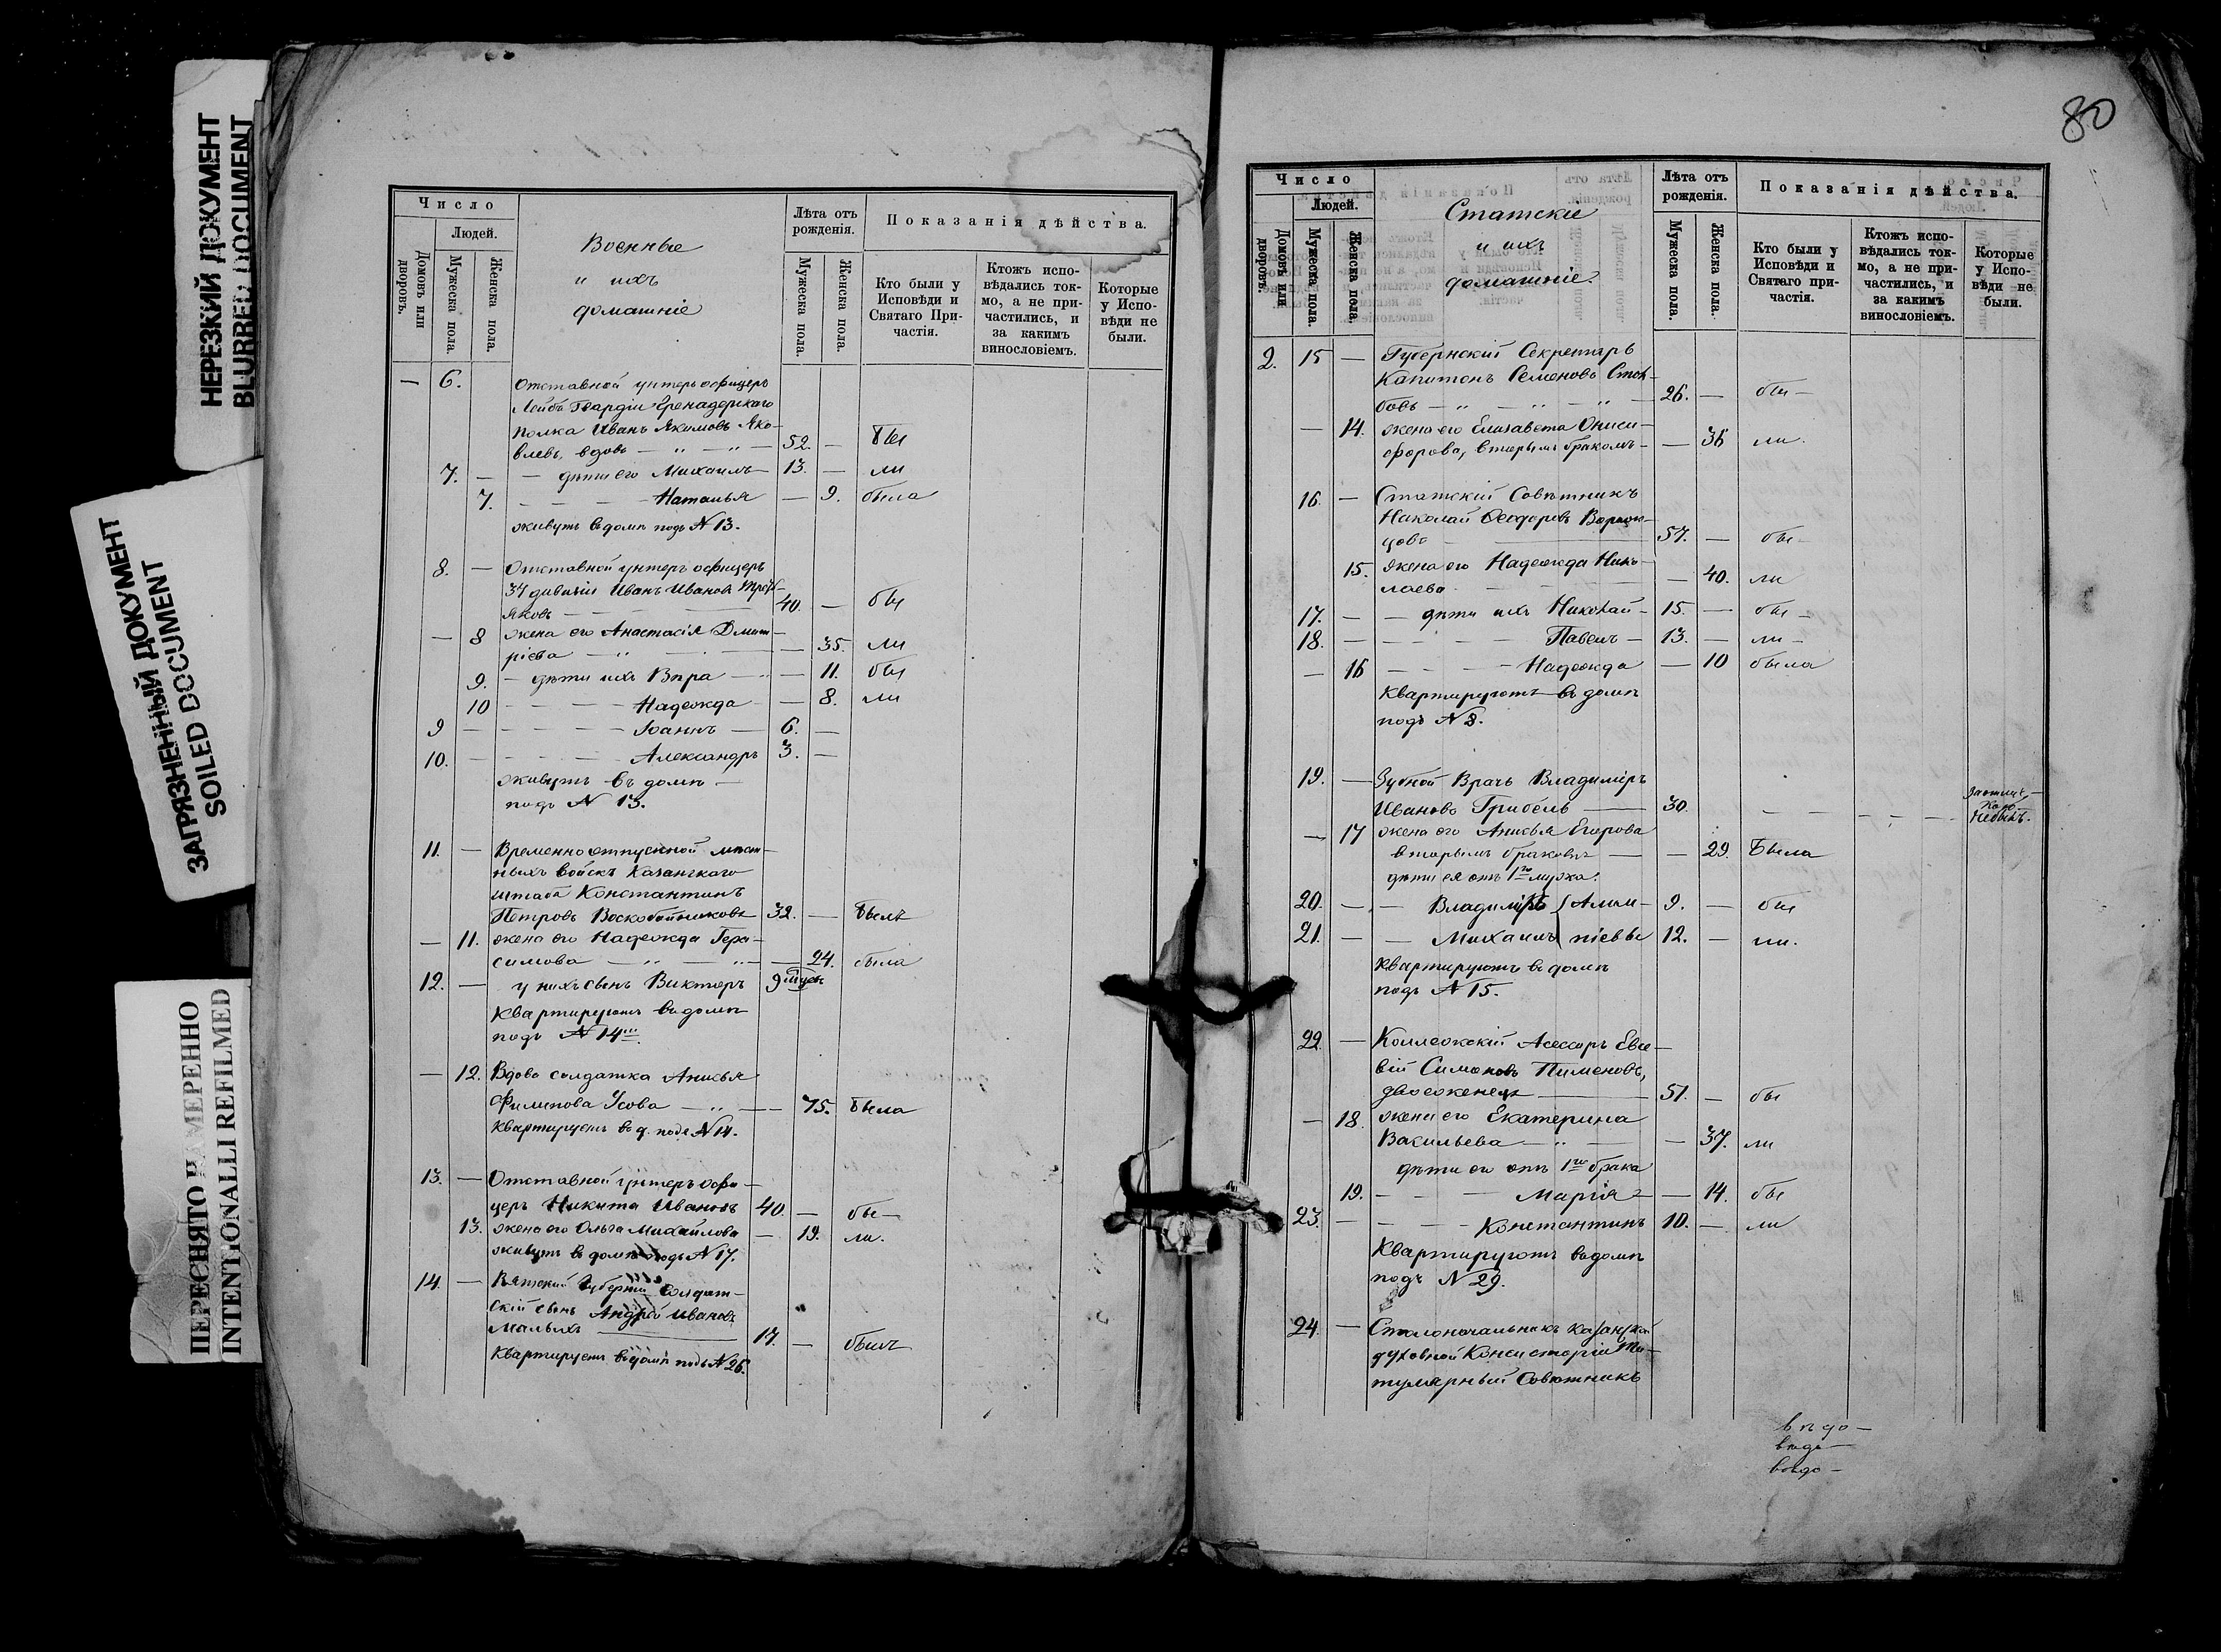 НЕРЕЗКИЙ ДОКУМЕНТ
BLURRED DOCUMENT
ЗАГРЯЗНЕННЫЙ ДОКУМЕНТ
SOILED DOCUMENT
ПЕРЕСНЯТО НАМЕРЕННО
INTENTIONALLI REFILMED
Число
Людей.
Домовъ или дворовъ.
Мужеска пола.
Женска пола.
Военные
и ихъ
домашніе
Лѣта отъ рожденія.
Мужеска пола.
Женска пола.
Показанія дѣйства.
Кто были у Исповѣди и Святаго Причастія.
Ктожъ исповѣдались токмо, а не причастились, и за какимъ винословіемъ.
Которые у Исповѣди не были.
— 6. Отставной унтеръ офицеръ
Лейбъ Гвардіи Гренадерскаго
полка Иванъ Якимовъ Яко-
влевъ, вдовъ — " — " — 52. — бы
7. — — дѣти его Михаилъ — 13. — ли
7. — — — Наталья — 9. была
живутъ въ домѣ подъ N 13.
8. — Отставной унтеръ офицеръ
34 дивизіи Иванъ Ивановъ Треть-
яковъ — — — 40. — бы
— 8 жена его Анастасія Дмит-
ріева — " — — 35. ли
9. — дѣти ихъ Вѣра — — 11. бы
10 — — — — Надежда — 8. ли
9 — — — — — Іоаннъ — 6. —
10. — — — — Александръ 3. —
живутъ въ домѣ —
подъ N 13.
11. — Временно отпускной мѣст-
ныхъ войскъ Казанскаго
штаба Константинъ
Петровъ Воскобойниковъ 32. — былъ
— 11. жена его Надежда Гера-
симова — " — " — 24. была
12. — у нихъ сынъ Викторъ 9 мѣся
Квартируютъ въ домѣ
подъ N 14мъ
— 12. Вдова солдатка Анисья
Филипова Усова — " — 75. была
Квартируетъ въ д. подъ N 14.
13. — Отставной унтеръ офи-
церъ Никита Ивановъ 40. — бы —
13. жена его Ольга Михайлова — 19. ли.
живутъ въ домѣ подъ N 17.
14. — Вятской Губерніи солдат-
скій сынъ Андрей Ивановъ
Малыхъ — 17. — былъ
Квартируетъ въ домѣ подъ N 26.
80
Число
Людей.
Домовъ или дворовъ.
Мужеска пола.
Женска пола.
Статскіе
и ихъ
домашніе.
Лѣта отъ рожденія.
Мужеска пола.
Женска пола.
Показанія дѣйства.
Кто были у Исповѣди и Святаго причастія.
Ктожъ исповѣдались токмо, а не причастились, и за какимъ винословіемъ.
Которые у Исповѣди не были.
2. 15 — Губернскій Секретарь
Капитонъ Семеновъ Стол-
бовъ — " — " — " — 26. — бы —
— 14. жена его Елизавета Ониси-
форова, вторымъ бракомъ — — 36 ли.
16. — Статскій Совѣтникъ
Николай Ѳеодоровъ
цовъ — 57. — бы —
15. жена его Надежда Нико-
лаева — — 40. ли
17. — — дѣти ихъ Николай — 15. — бы —
18. — — — — Павелъ — 13. — ли —
— 16 — — — — Надежда — 10 была
Квартируютъ въ домѣ
подъ N 8.
19. — Зубной Врачъ Владиміръ
Ивановъ Грибель — 30. — — — — небылъ.
— 17 жена его Анисья Егорова
вторымъ бракомъ — — 29. Была
дѣти ея отъ 1го мужа:
20. — — Владиміръ 9. — бы
21. — — Михаилъ 12. — ли.
Квартируютъ въ домѣ
подъ N 15.
22. — Коллежскій Асессоръ Евсе-
вій Симоновъ Пименовъ,
двоеженецъ — 51. — бы
— 18. жена его Екатерина
Васильева — " — — 37. ли
дѣти его отъ 1го брака
19. — — — Марія — — 14. бы
23. — — — — Константинъ 10. — ли
Квартируютъ въ домѣ
подъ N 29.
24. — Столоначальникъ Казанской
духовной Консисторіи Ти-
тулярный Совѣтникъ